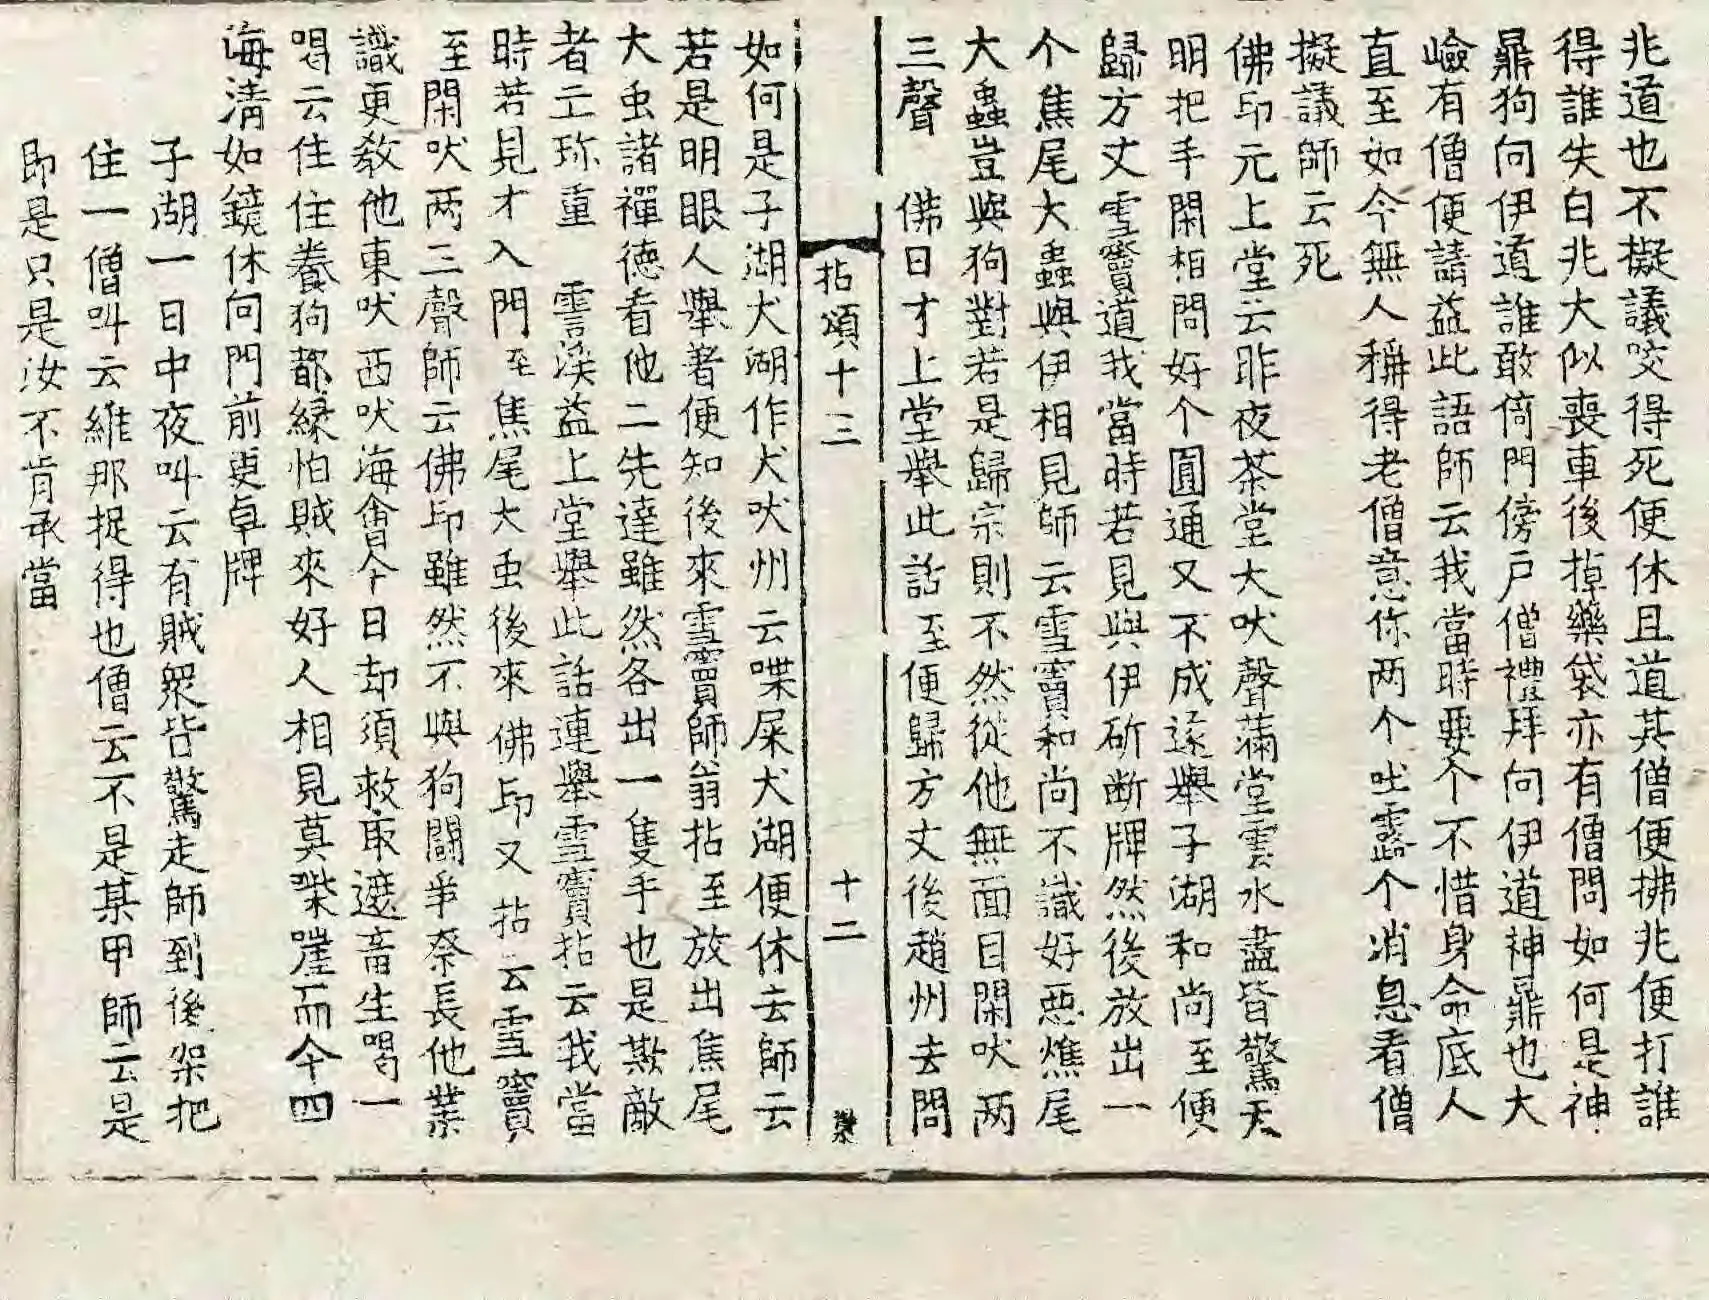 兆道也不擬議咬得死便休且道其僧便拂兆便打誰
得誰失白兆大似喪車後掉藥袋亦有僧問如何是神
鼎狗向伊道誰敢倚門傍戶僧禮拜向伊道神鼎也大
嶮有僧便請益此語師云我當時要个不惜身命底人
直至如今無人稱得老僧意你两个吐露个消息看僧
擬議師云死
佛印元上堂云昨夜茶堂犬吠聲滿堂雲水盡皆驚天
明把手閑相問好个圓通又不成遂舉子湖和尚至便
歸方丈雪竇道我當時若見與伊斫断牌然後放出一
个焦尾大蟲與伊相見師云雪竇和尚不識好惡燋尾
大蟲豈與狗對若是歸宗則不然從他無面目閑吠两
三聲　佛日才上堂舉此話至便歸方丈後趙州去問
拈頌十三　十二
如何是子湖犬湖作犬吠州云喋屎犬湖便休去師云
若是明眼人舉著便知後來雪竇師翁拈至放出焦尾
大虫諸禪德看他二先達雖然各出一隻手也是欺敵
者亡珎重　雲溪益上堂舉此話連舉雪竇拈云我當
時若見才入門至焦尾大虫後來佛印又拈云雪竇
至閑吠两三聲師云佛印雖然不與狗鬪爭奈長他業
識更教他東吠西吠海會今日却須救取遮畜生喝一
喝云住住養狗都緣怕賊來好人相見莫㗭嘊而今四
海淸如鏡休向門前更卓牌
子湖一日中夜叫云有賊眾皆驚走師到後架把
住一僧叫云維那捉得也僧云不是某甲師云是
即是只是汝不肯承當